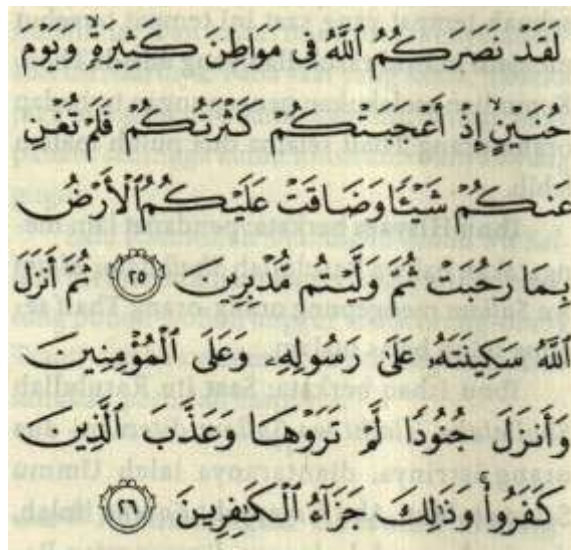 لَقَدْ نَصَرَكُمُ اللَّهُ فِى مَوَاطِنَ كَثِيرَةٍ وَيَوْمَ
حُنَيْنٍ إِذْ أَعْجَبَتْكُمْ كَثْرَتُكُمْ فَلَمْ تُغْنِ
عَنكُمْ شَيْـًٔا وَضَاقَتْ عَلَيْكُمُ الْأَرْضُ
بِمَا رَحُبَتْ ثُمَّ وَلَّيْتُم مُّدْبِرِينَ ٢٥ ثُمَّ أَنزَلَ
اللَّهُ سَكِينَتَهُۥ عَلَىٰ رَسُولِهِۦ وَعَلَى الْمُؤْمِنِينَ
وَأَنزَلَ جُنُودًا لَّمْ تَرَوْهَا وَعَذَّبَ الَّذِينَ
كَفَرُوا۟ وَذَٰلِكَ جَزَآءُ الْكَـٰفِرِينَ ٢٦